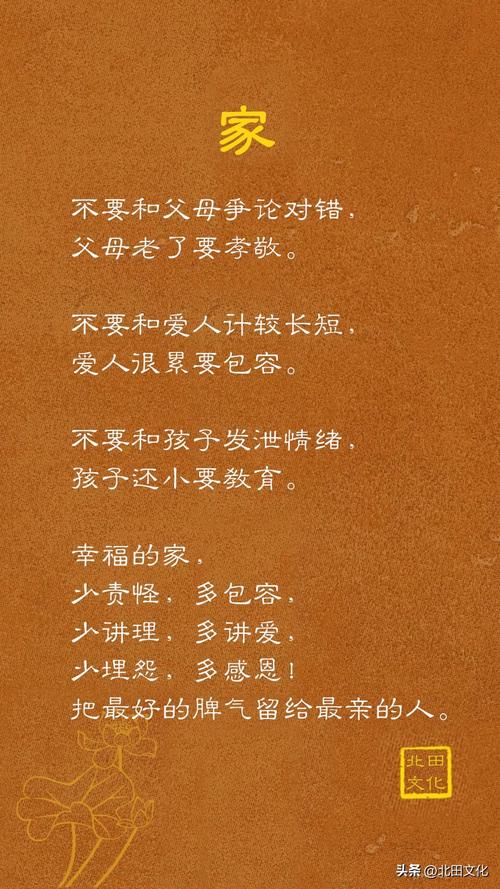 家
不要和父母争论对错，
父母老了要孝敬。
不要和爱人计较长短，
爱人很累要包容。
不要和孩子发泄情绪，
孩子还小要教育。
幸福的家，
少责怪，多包容，
少讲理，多讲爱，
少埋怨，多感恩！
把最好的脾气留给最亲的人。
北田
文化
头条 @北田文化